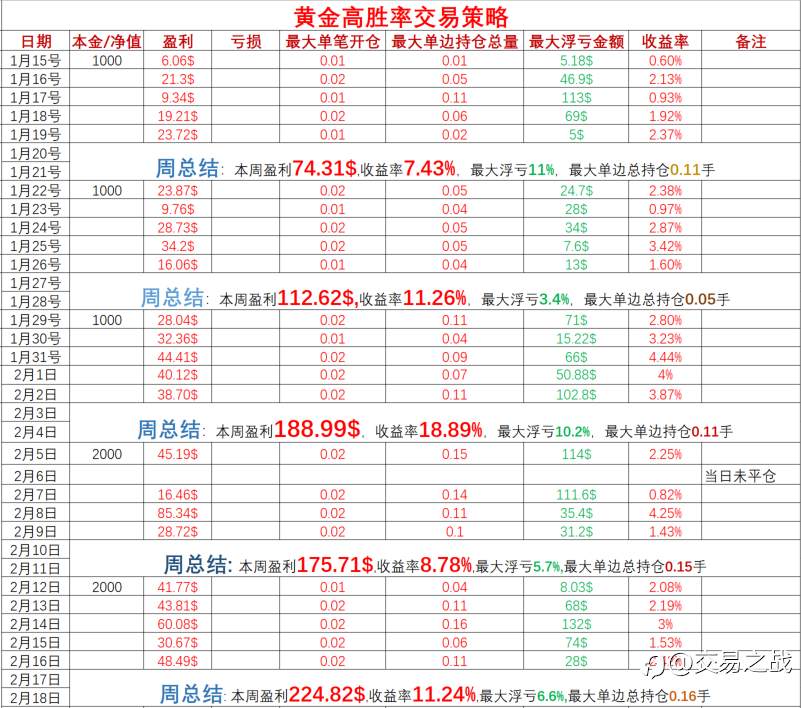 黄金高胜率交易策略
日期 本金/净值 盈利 亏损 最大单笔开仓 最大单边持仓总量 最大浮亏金额 收益率 备注
1月15号 1000 6.06$ 0.01 0.01 5.18$ 0.60%
1月16号 21.3$ 0.02 0.05 46.9$ 2.13%
1月17号 9.34$ 0.01 0.11 113$ 0.93%
1月18号 19.21$ 0.02 0.06 69$ 1.92%
1月19号 23.72$ 0.01 0.02 5$ 2.37%
1月20号
1月21号
周总结: 本周盈利74.31$,收益率7.43%, 最大浮亏11%, 最大单边总持仓0.11手
1月22号 1000 23.87$ 0.02 0.05 24.7$ 2.38%
1月23号 9.76$ 0.01 0.04 28$ 0.97%
1月24号 28.73$ 0.02 0.05 34$ 2.87%
1月25号 34.2$ 0.02 0.05 7.6$ 3.42%
1月26号 16.06$ 0.01 0.04 13$ 1.60%
1月27号
1月28号
周总结: 本周盈利112.62$,收益率11.26%, 最大浮亏3.4%, 最大单边总持仓0.05手
1月29号 1000 28.04$ 0.02 0.11 71$ 2.80%
1月30号 32.36$ 0.01 0.04 15.22$ 3.23%
1月31号 44.41$ 0.02 0.09 66$ 4.44%
2月1日 40.12$ 0.02 0.07 50.88$ 4%
2月2日 38.70$ 0.02 0.11 102.8$ 3.87%
2月3日
2月4日
周总结: 本周盈利188.99$, 收益率18.89%, 最大浮亏10.2%, 最大单边持仓0.11手
2月5日 2000 45.19$ 0.02 0.15 114$ 2.25%
2月6日 当日未平仓
2月7日 16.46$ 0.02 0.14 111.6$ 0.82%
2月8日 85.34$ 0.02 0.11 35.4$ 4.25%
2月9日 28.72$ 0.02 0.1 31.2$ 1.43%
2月10日
2月11日
周总结: 本周盈利175.71$,收益率8.78%,最大浮亏5.7%,最大单边总持仓0.15手
2月12日 2000 41.77$ 0.01 0.04 8.03$ 2.08%
2月13日 43.81$ 0.02 0.11 68$ 2.19%
2月14日 60.08$ 0.02 0.16 132$ 3%
2月15日 30.67$ 0.02 0.06 74$ 1.53%
2月16日 48.49$ 0.02 0.11 28$
@交易之战
2月17日
2月18日
周总结: 本周盈利224.82$,收益率11.24%,最大浮亏6.6%,最大单边总持仓0.16手